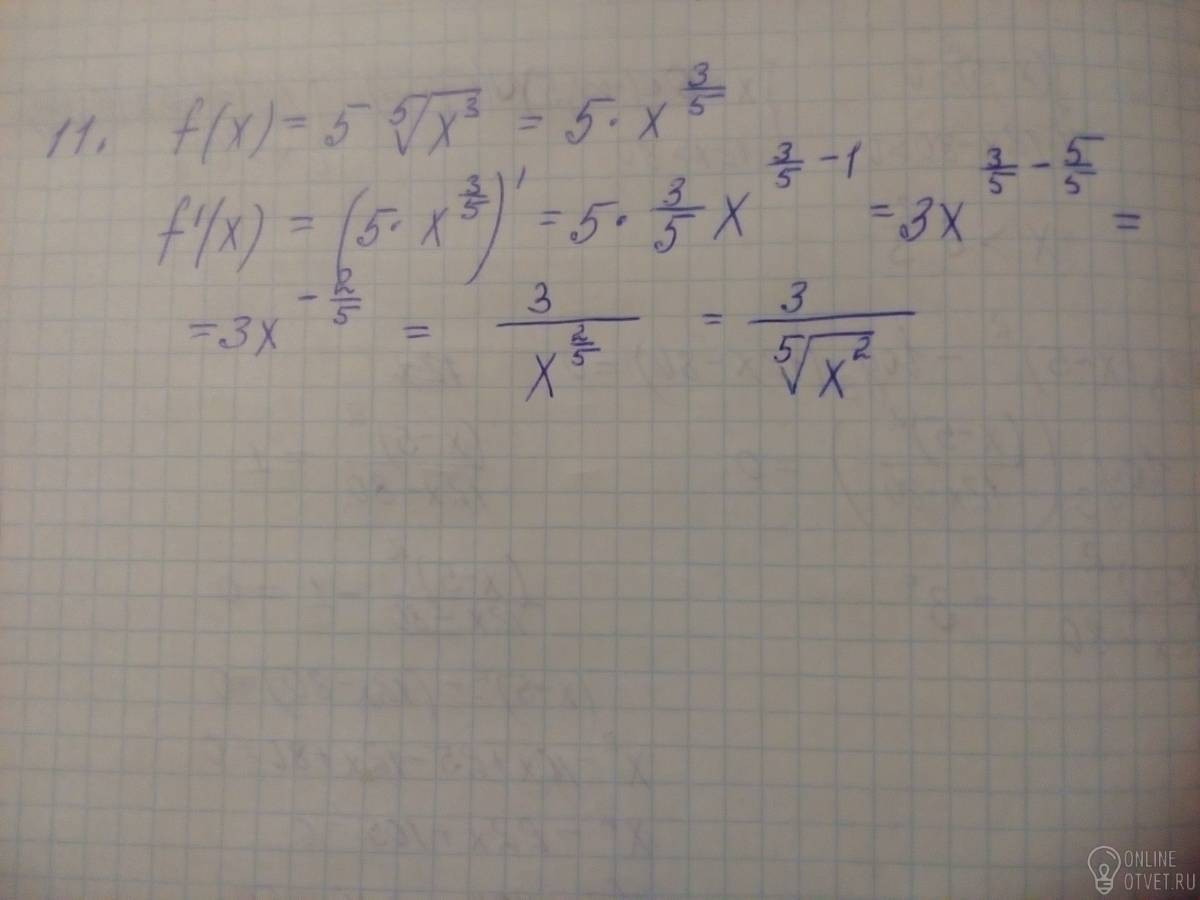 11. f(x) = 5 ⁵√x³ = 5 · x^(3/5)
f'(x) = (5 · x^(3/5))' = 5 · 3/5 x^(3/5 - 1) = 3x^(3/5 - 5/5) =
= 3x^(-2/5) = 3/x^(2/5) = 3/⁵√x²
ONLINE
OTVET.RU